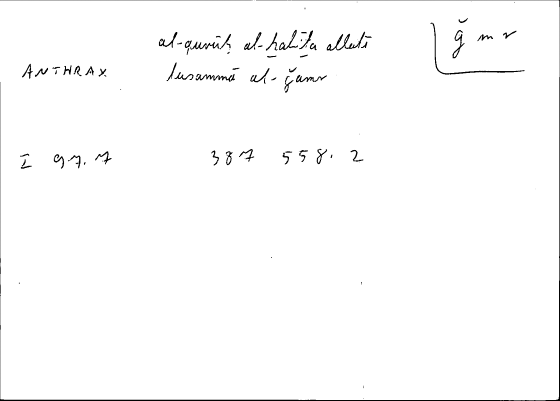 ǧ m r
al-qurūḥ al-ḫabīṯa allatī
ANTHRAX tusammā al-ǧamr
I 97.7 387 558.2